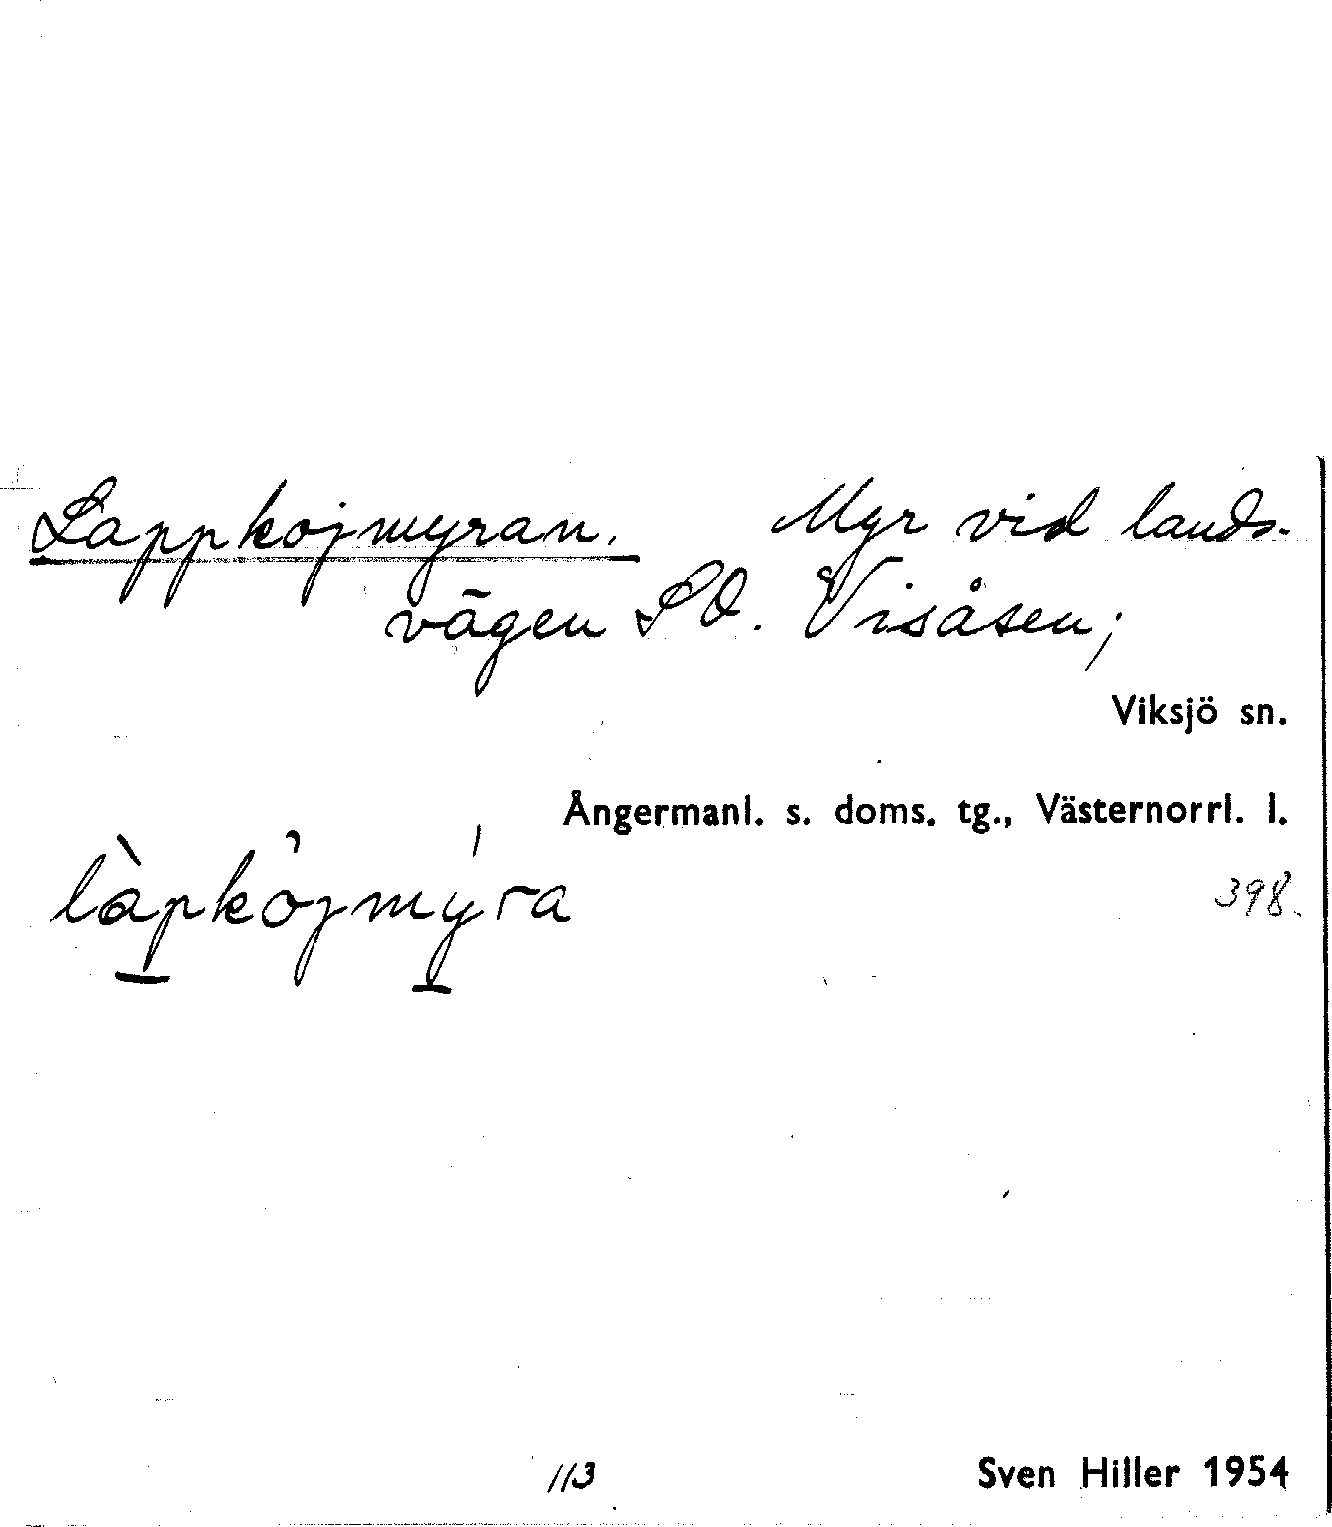 Lappkojmyran. Myr vid lands-
vägen SO. Visåsen;
Viksjö sn.
Ångermanl. s. doms. tg., Västernorrl. l.
làpkòjmýra
398.
113
Sven Hiller 1954